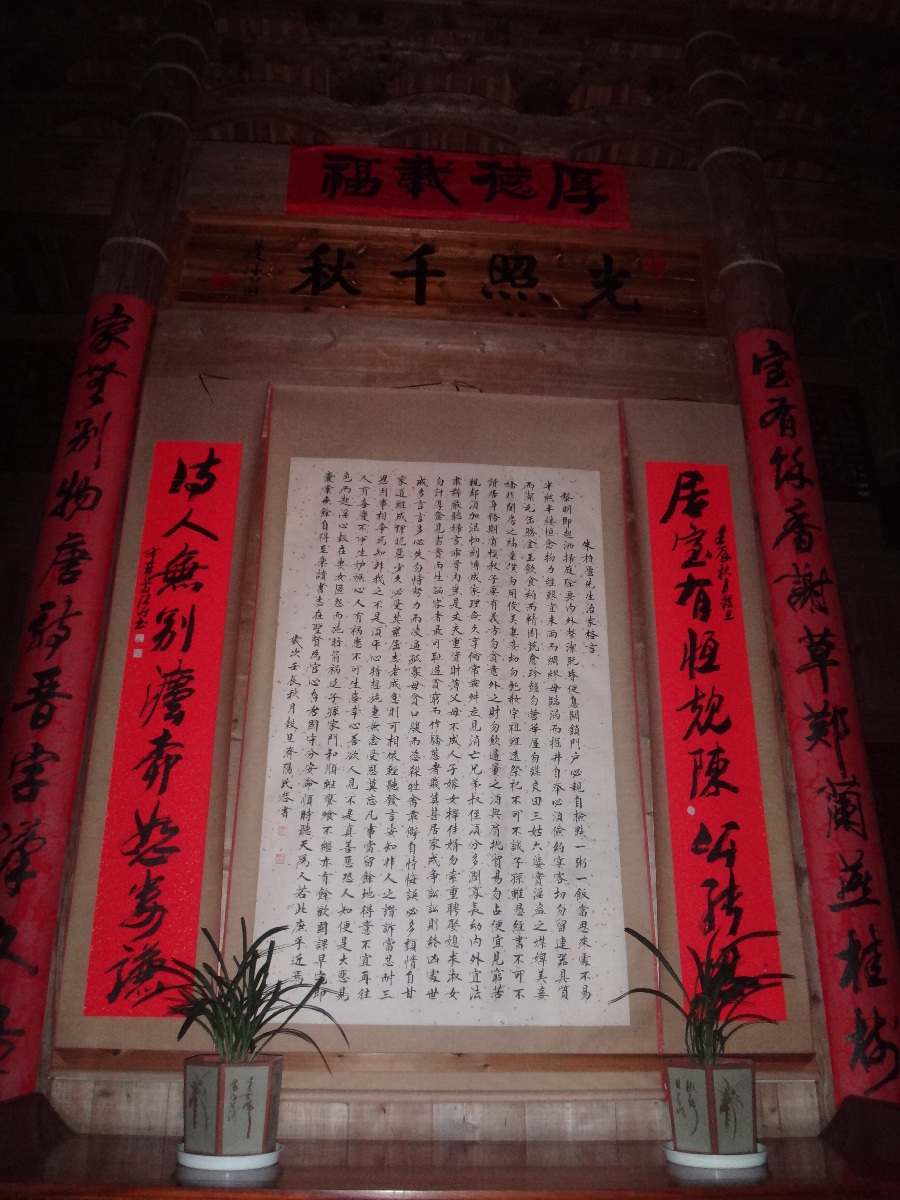 厚德載福
光照千秋
室有馀香謝草郑蘭燕桂樹
家無别物唐诗晋字漢文
居室有恆
陳
壬辰秋月穀旦
人無别
朱柏廬先生治家格言
黎明即起洒掃庭除要內外整潔既昏便息關鎖門户必親自檢點一粥一飯當思來處不易
半絲半縷恒念物力維艱宜未雨而綢繆毋臨渴而掘井自奉必須儉約宴客切勿留連器具質
而潔瓦缶勝金玉飲食約而精園蔬愈珍饈勿營華屋勿謀良田三姑六婆實淫盜之媒婢美妾
嬌非閨房之福童僕勿用俊美妻妾切勿艷妝宗祖雖遠祭祀不可不誠子孫雖愚經書不可不
讀居身務期質樸教子要有義方勿貪意外之財勿飲過量之酒與肩挑貿易勿占便宜見窮苦
親鄰須加温恤刻薄成家理無久享倫常乖舛立見消亡兄弟叔侄須分多潤寡長幼內外宜法
肅辭嚴聽婦言乖骨肉豈是丈夫重資財薄父母不成人子嫁女擇佳婿勿索重聘娶媳求淑女
勿計厚奩見富貴而生諂容者最可耻遇貧窮而作驕態者賤莫甚居家戒爭訟訟則終凶處世
戒多言言多必失勿恃勢力而凌逼孤寡毋貪口腹而恣殺牲禽乖僻自恃悔誤必多頹惰自甘
家道難成狎昵惡少久必受其累屈志老成急則可相依輕聽發言安知非人之譖訴當忍耐三
思因事相爭焉知非我之不是須平心暗想施惠無念受恩莫忘凡事當留餘地得意不宜再往
人有喜慶不可生妒嫉心人有禍患不可生喜幸心善欲人見不是真善惡恐人知便是大惡見
色而起淫心報在妻女匿怨而施暗箭禍延子孫家門和順雖饔飧不繼亦有餘歡國課早完即
囊橐無餘自得至樂讀書志在聖賢爲官心存君國守分安命順時聽天爲人若此庶乎近焉
歲次壬辰秋月穀旦濟陽氏 書